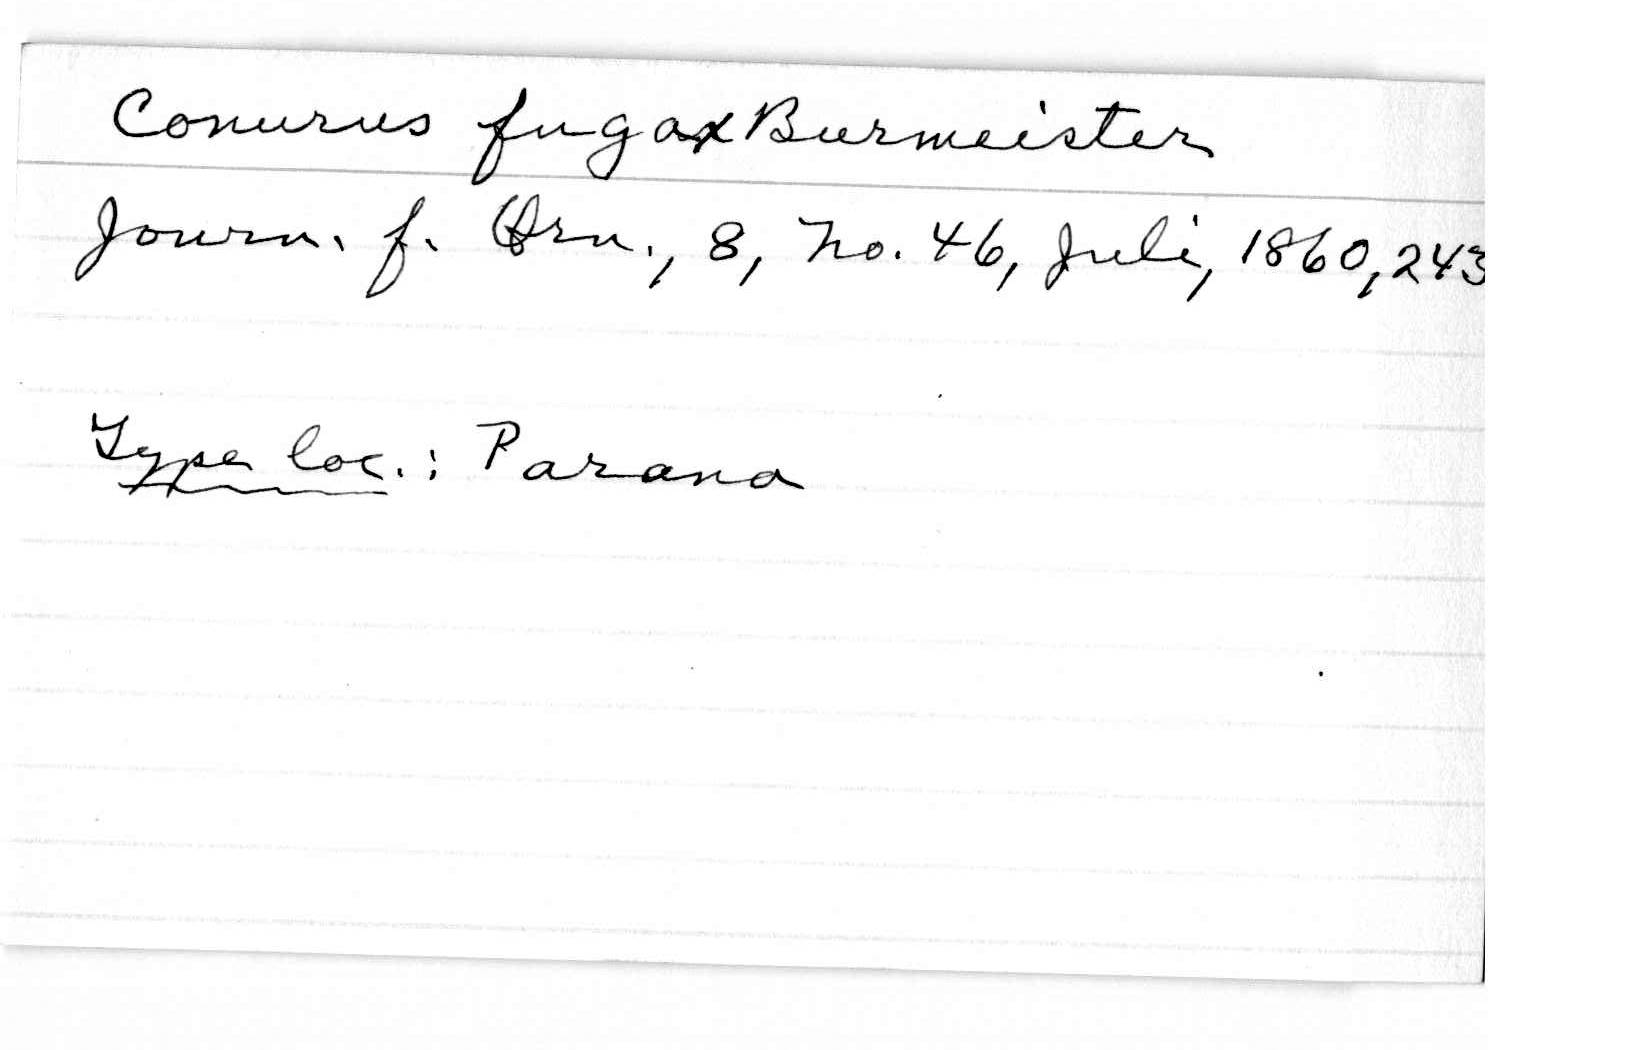 Conurus fugax Burmeister
Journ. f. Orn., 8, No. 46, Juli, 1860, 243
Type loc.: Parana